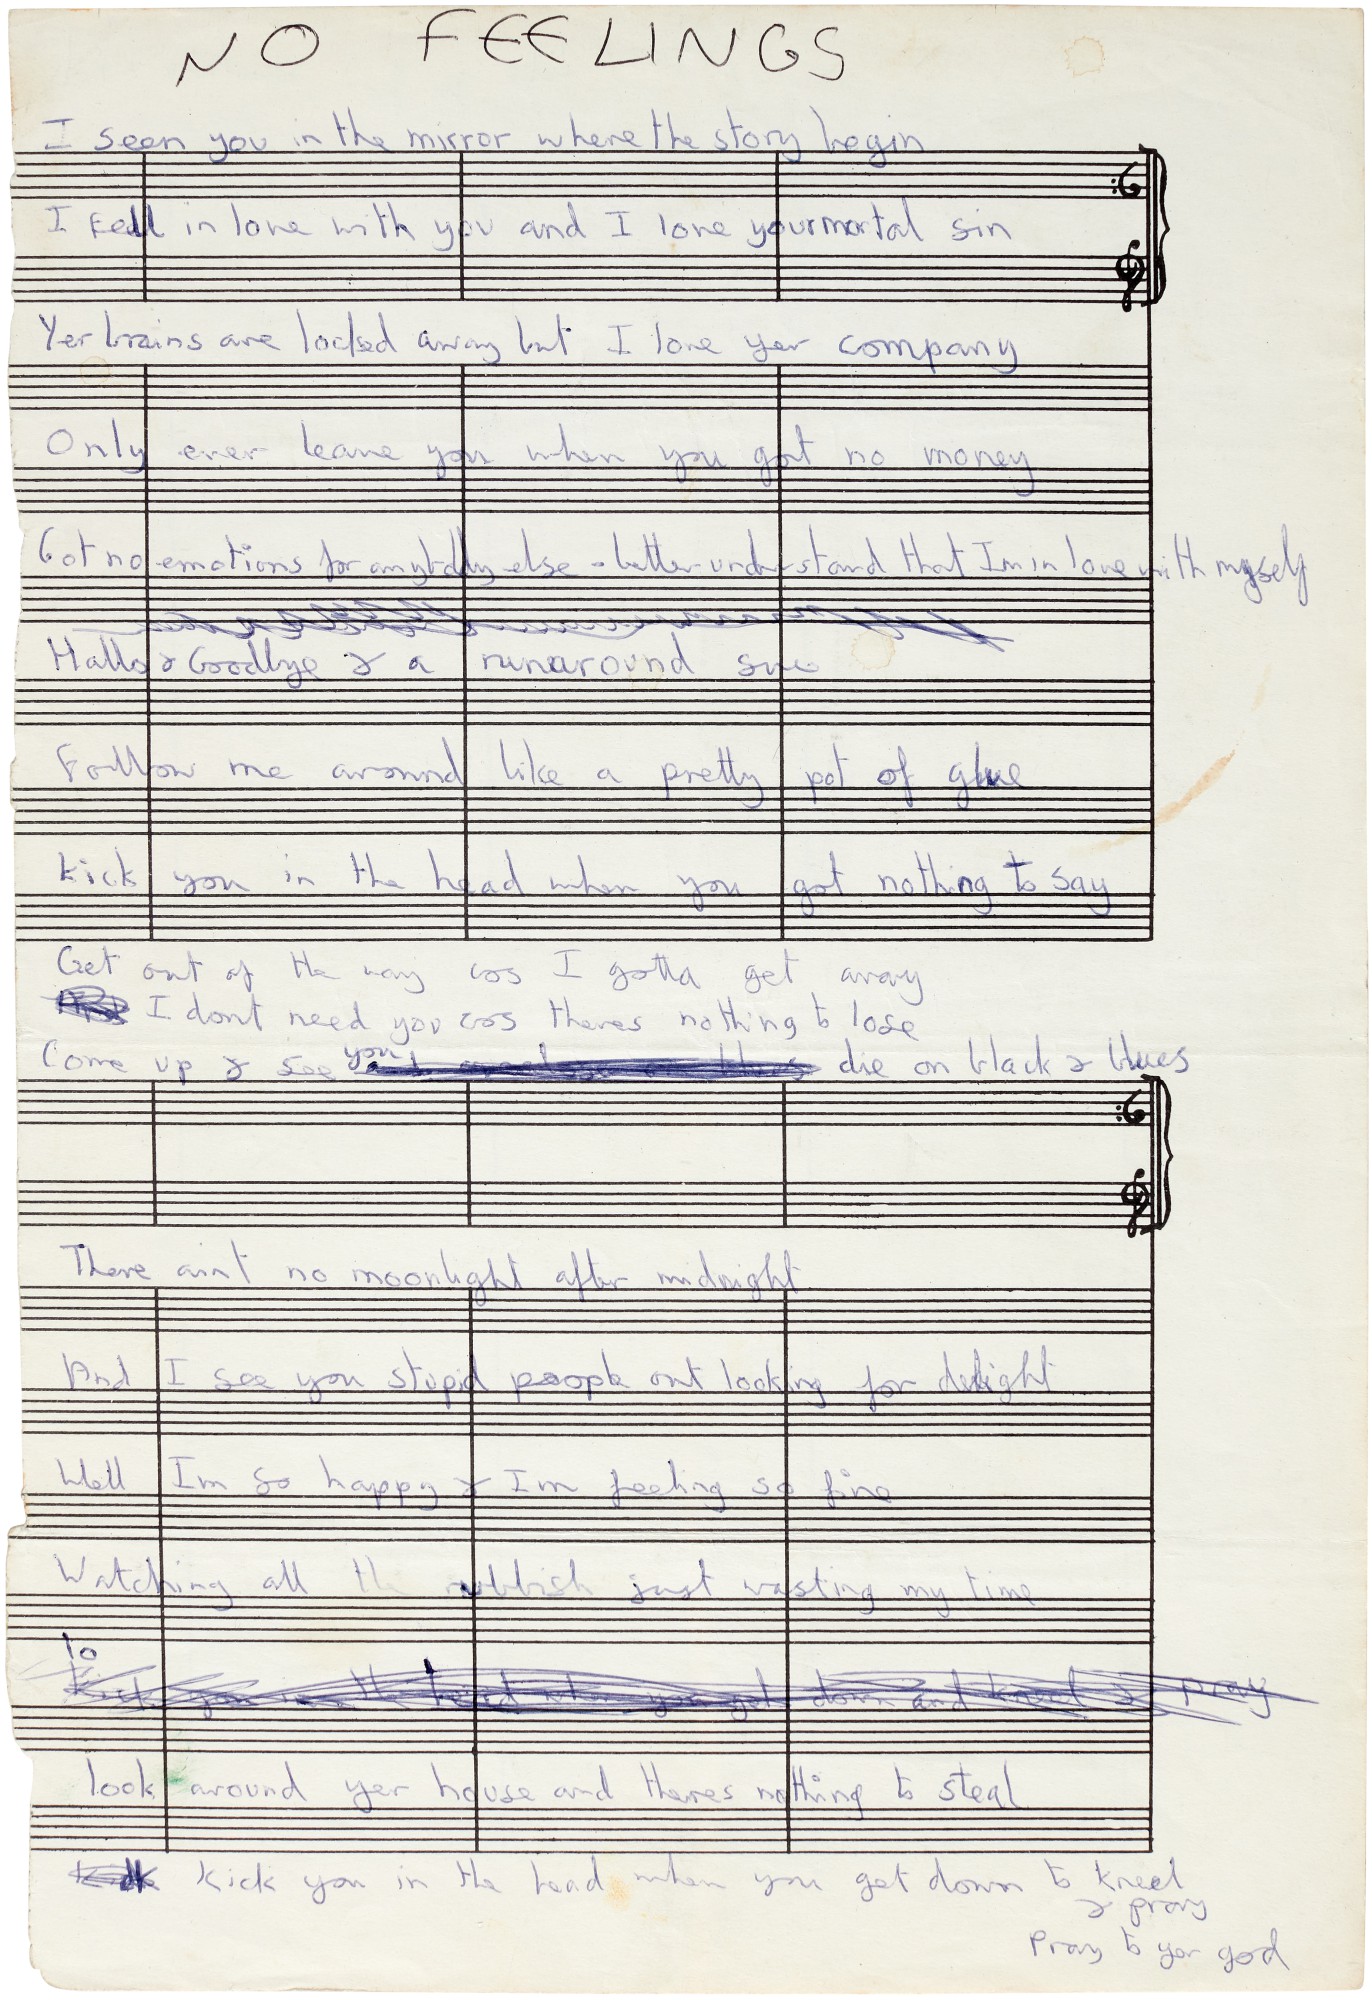 NO FEELINGS
I seen you in the mirror where the story begin
I fell in love with you and I love your mortal sin
Yer brains are locked away but I love yer company
Only ever leave you when you got no money
Got no emotions for anybody else - better understand that Im in love with myself
Hallo & Goodbye & a runaround sue
Follow me around like a pretty pot of glue
Kick you in the head when you got nothing to say
Get out of the way cos I gotta get away
I dont need you cos theres nothing to lose
Come up & see you die on black & blues
There aint no moonlight after midnight
And I see you stupid people out looking for delight
Well Im so happy & Im feeling so fine
Watching all the rubbish just wasting my time
To
Kick you in the head when you get down and kneel & pray
look around yer house and theres nothing to steal
Kick you in the head when you get down to kneel
& pray
Pray to yer god